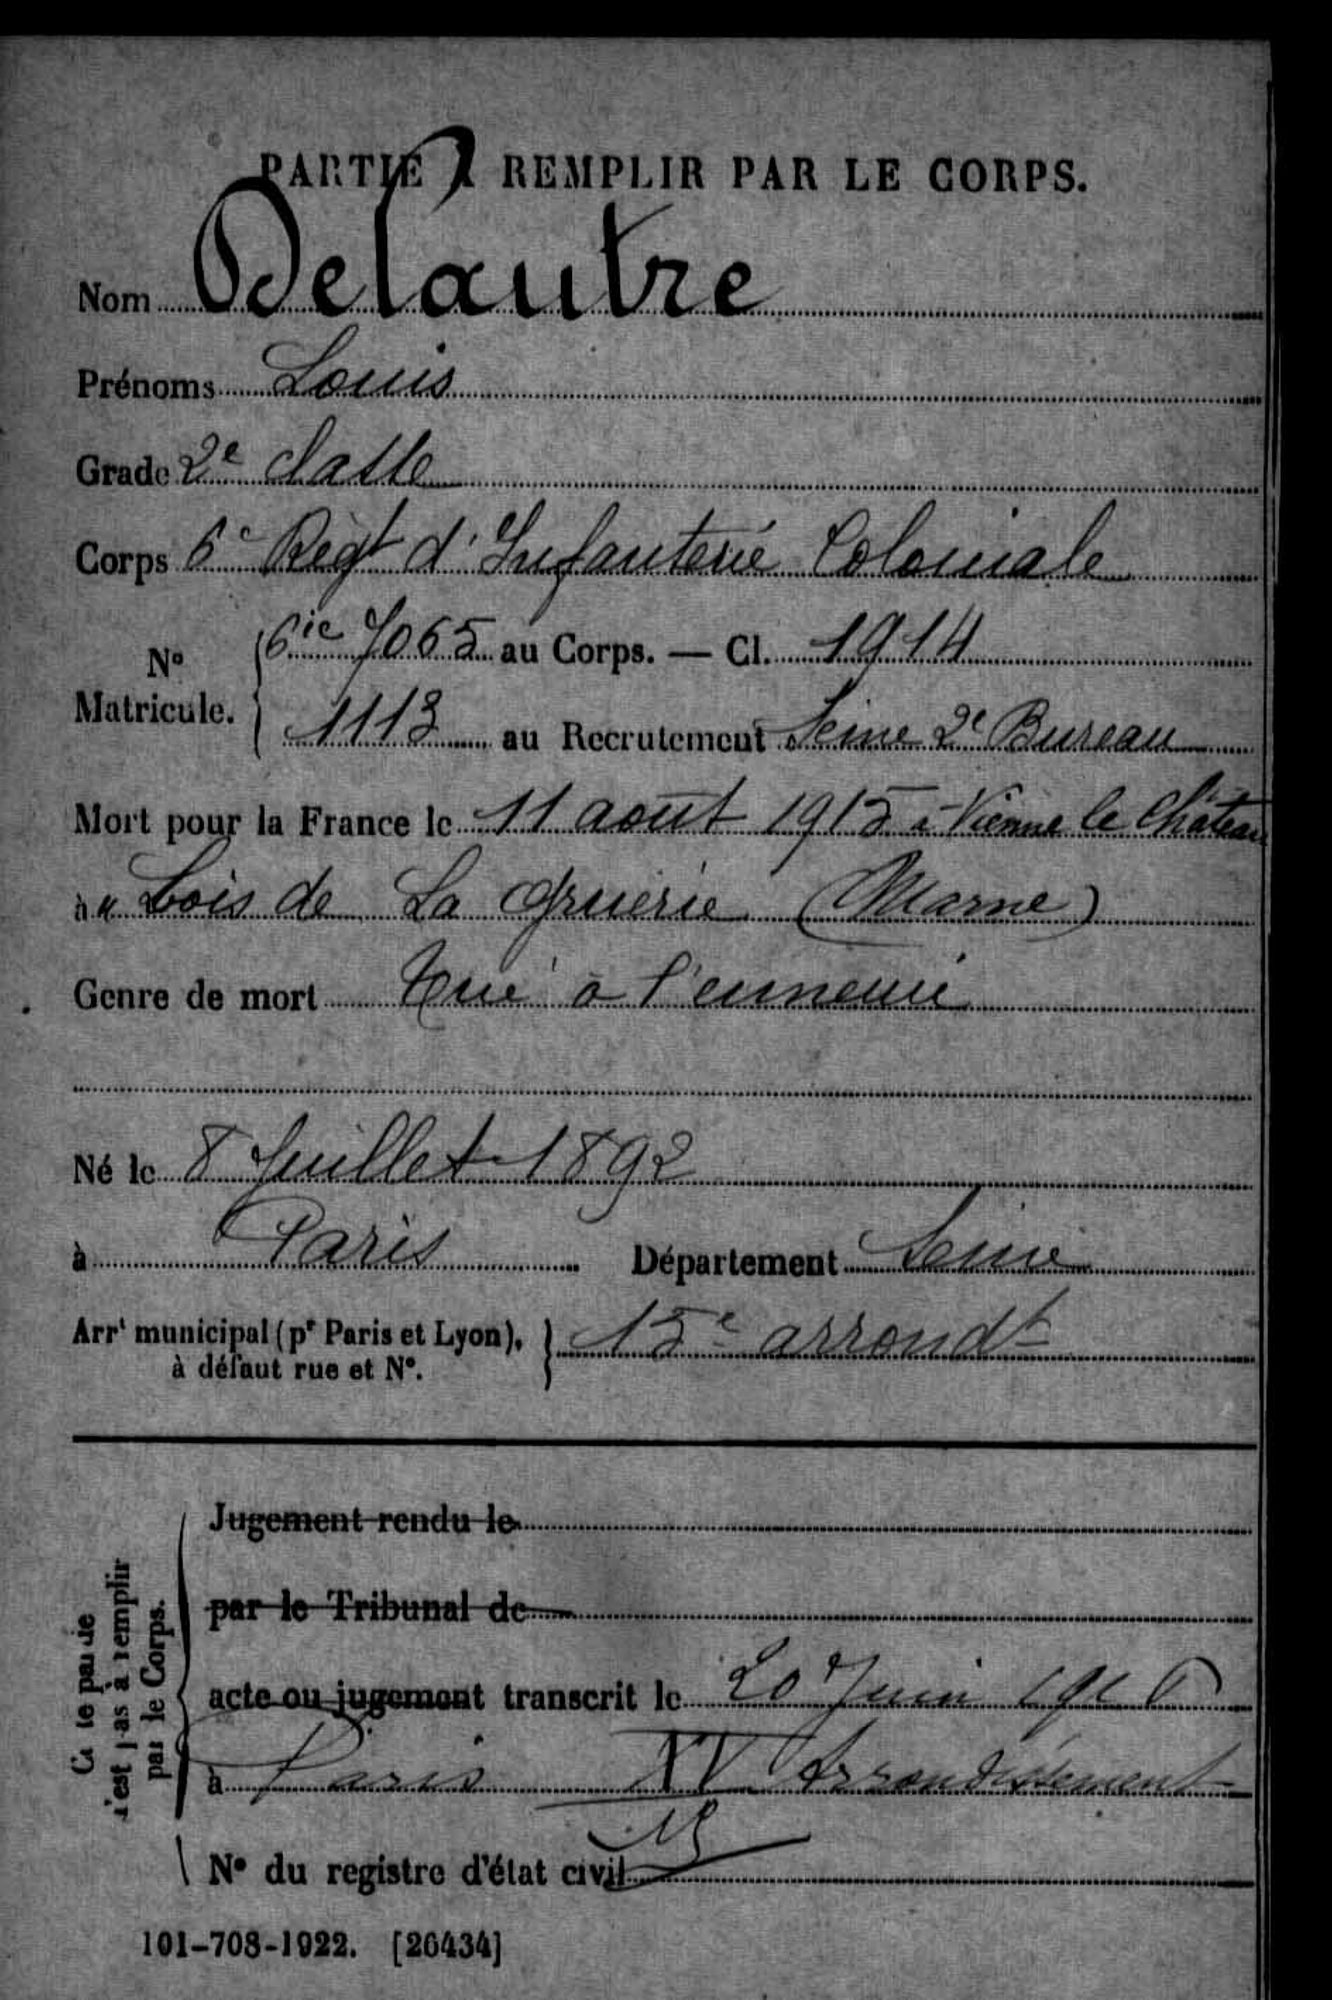 PARTIE À REMPLIR PAR LE CORPS.
Nom Delautre
Prénoms Louis
Grade 2e classe
Corps 6e Régt d'Infanterie Coloniale
No Matricule. 6ie 7065 au Corps. — Cl. 1914
1113 au Recrutement Seine 2e Bureau
Mort pour la France le 11 août 1915 à Vienne le Château
à " bois de La Gruerie (Marne)
Genre de mort Tué à l'ennemi
Né le 8 Juillet 1892
à Paris Département Seine
Arrt municipal (pr Paris et Lyon), à défaut rue et No. 15e arrondt
Cette partie n'est pas à remplir par le Corps.
Jugement rendu le
par le Tribunal de
acte ou jugement transcrit le 20 Juin 1916
à Paris XV Arrondissement
No du registre d'état civil
101-708-1922. [26434]